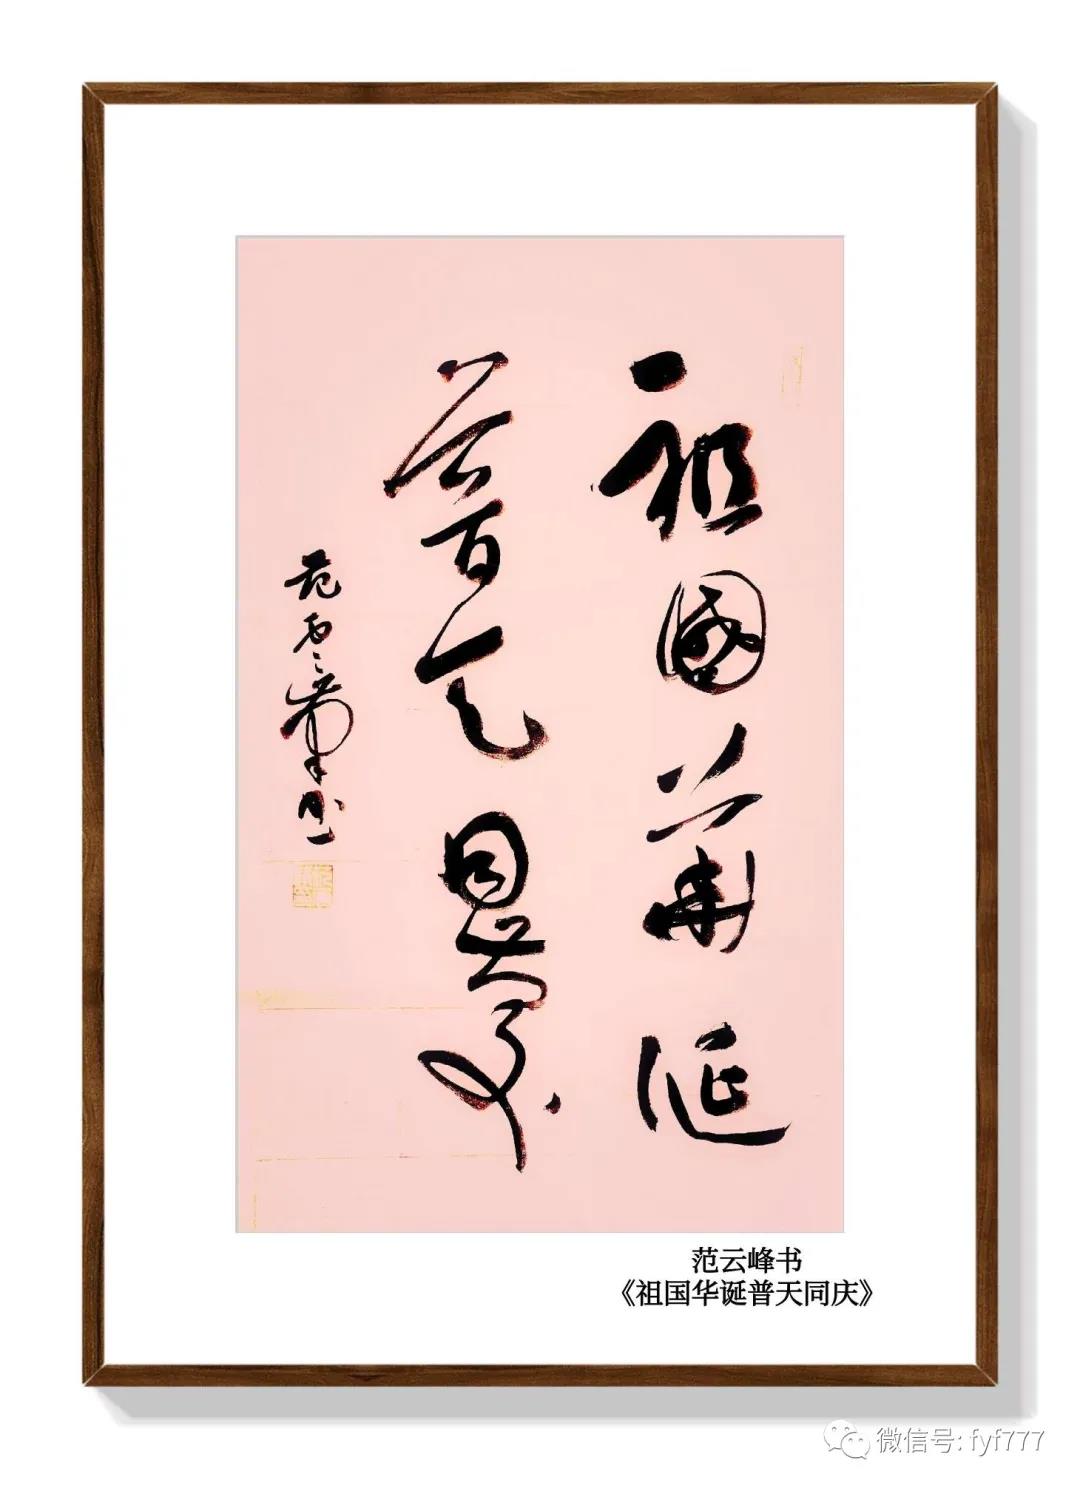 祖國華诞
普天同慶
范云峰书
范云峰书
《祖国华诞普天同庆》
微信号: fyf777